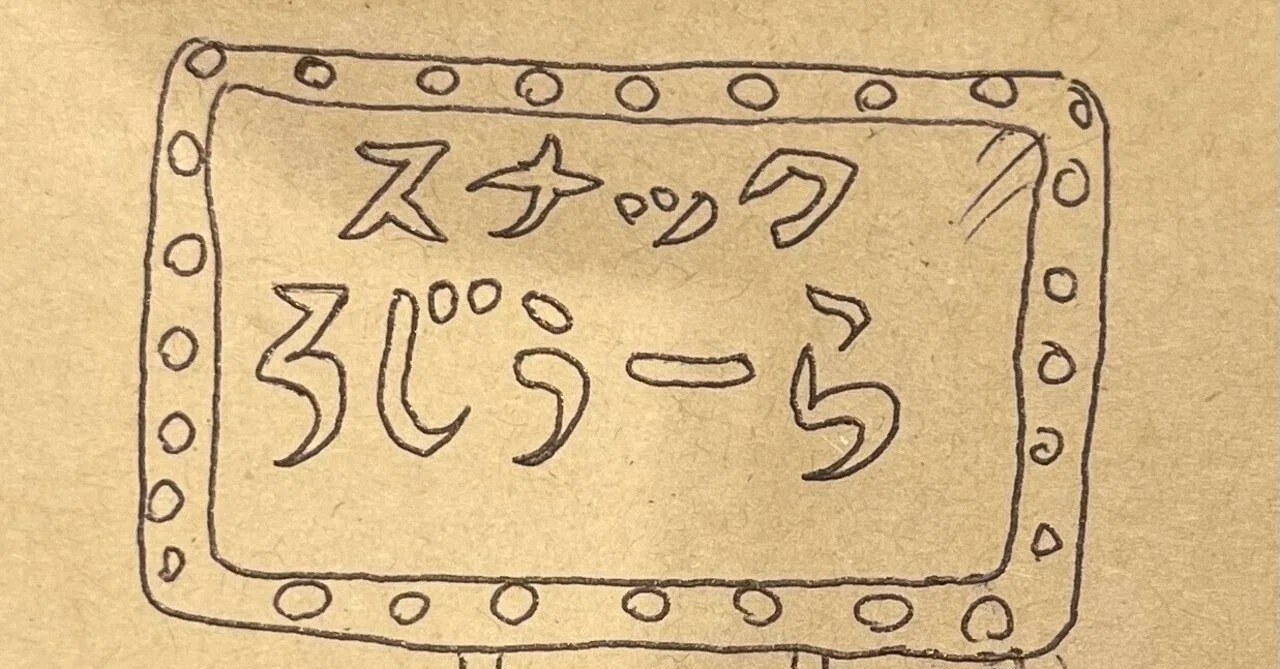 スナック
ろじぅーら